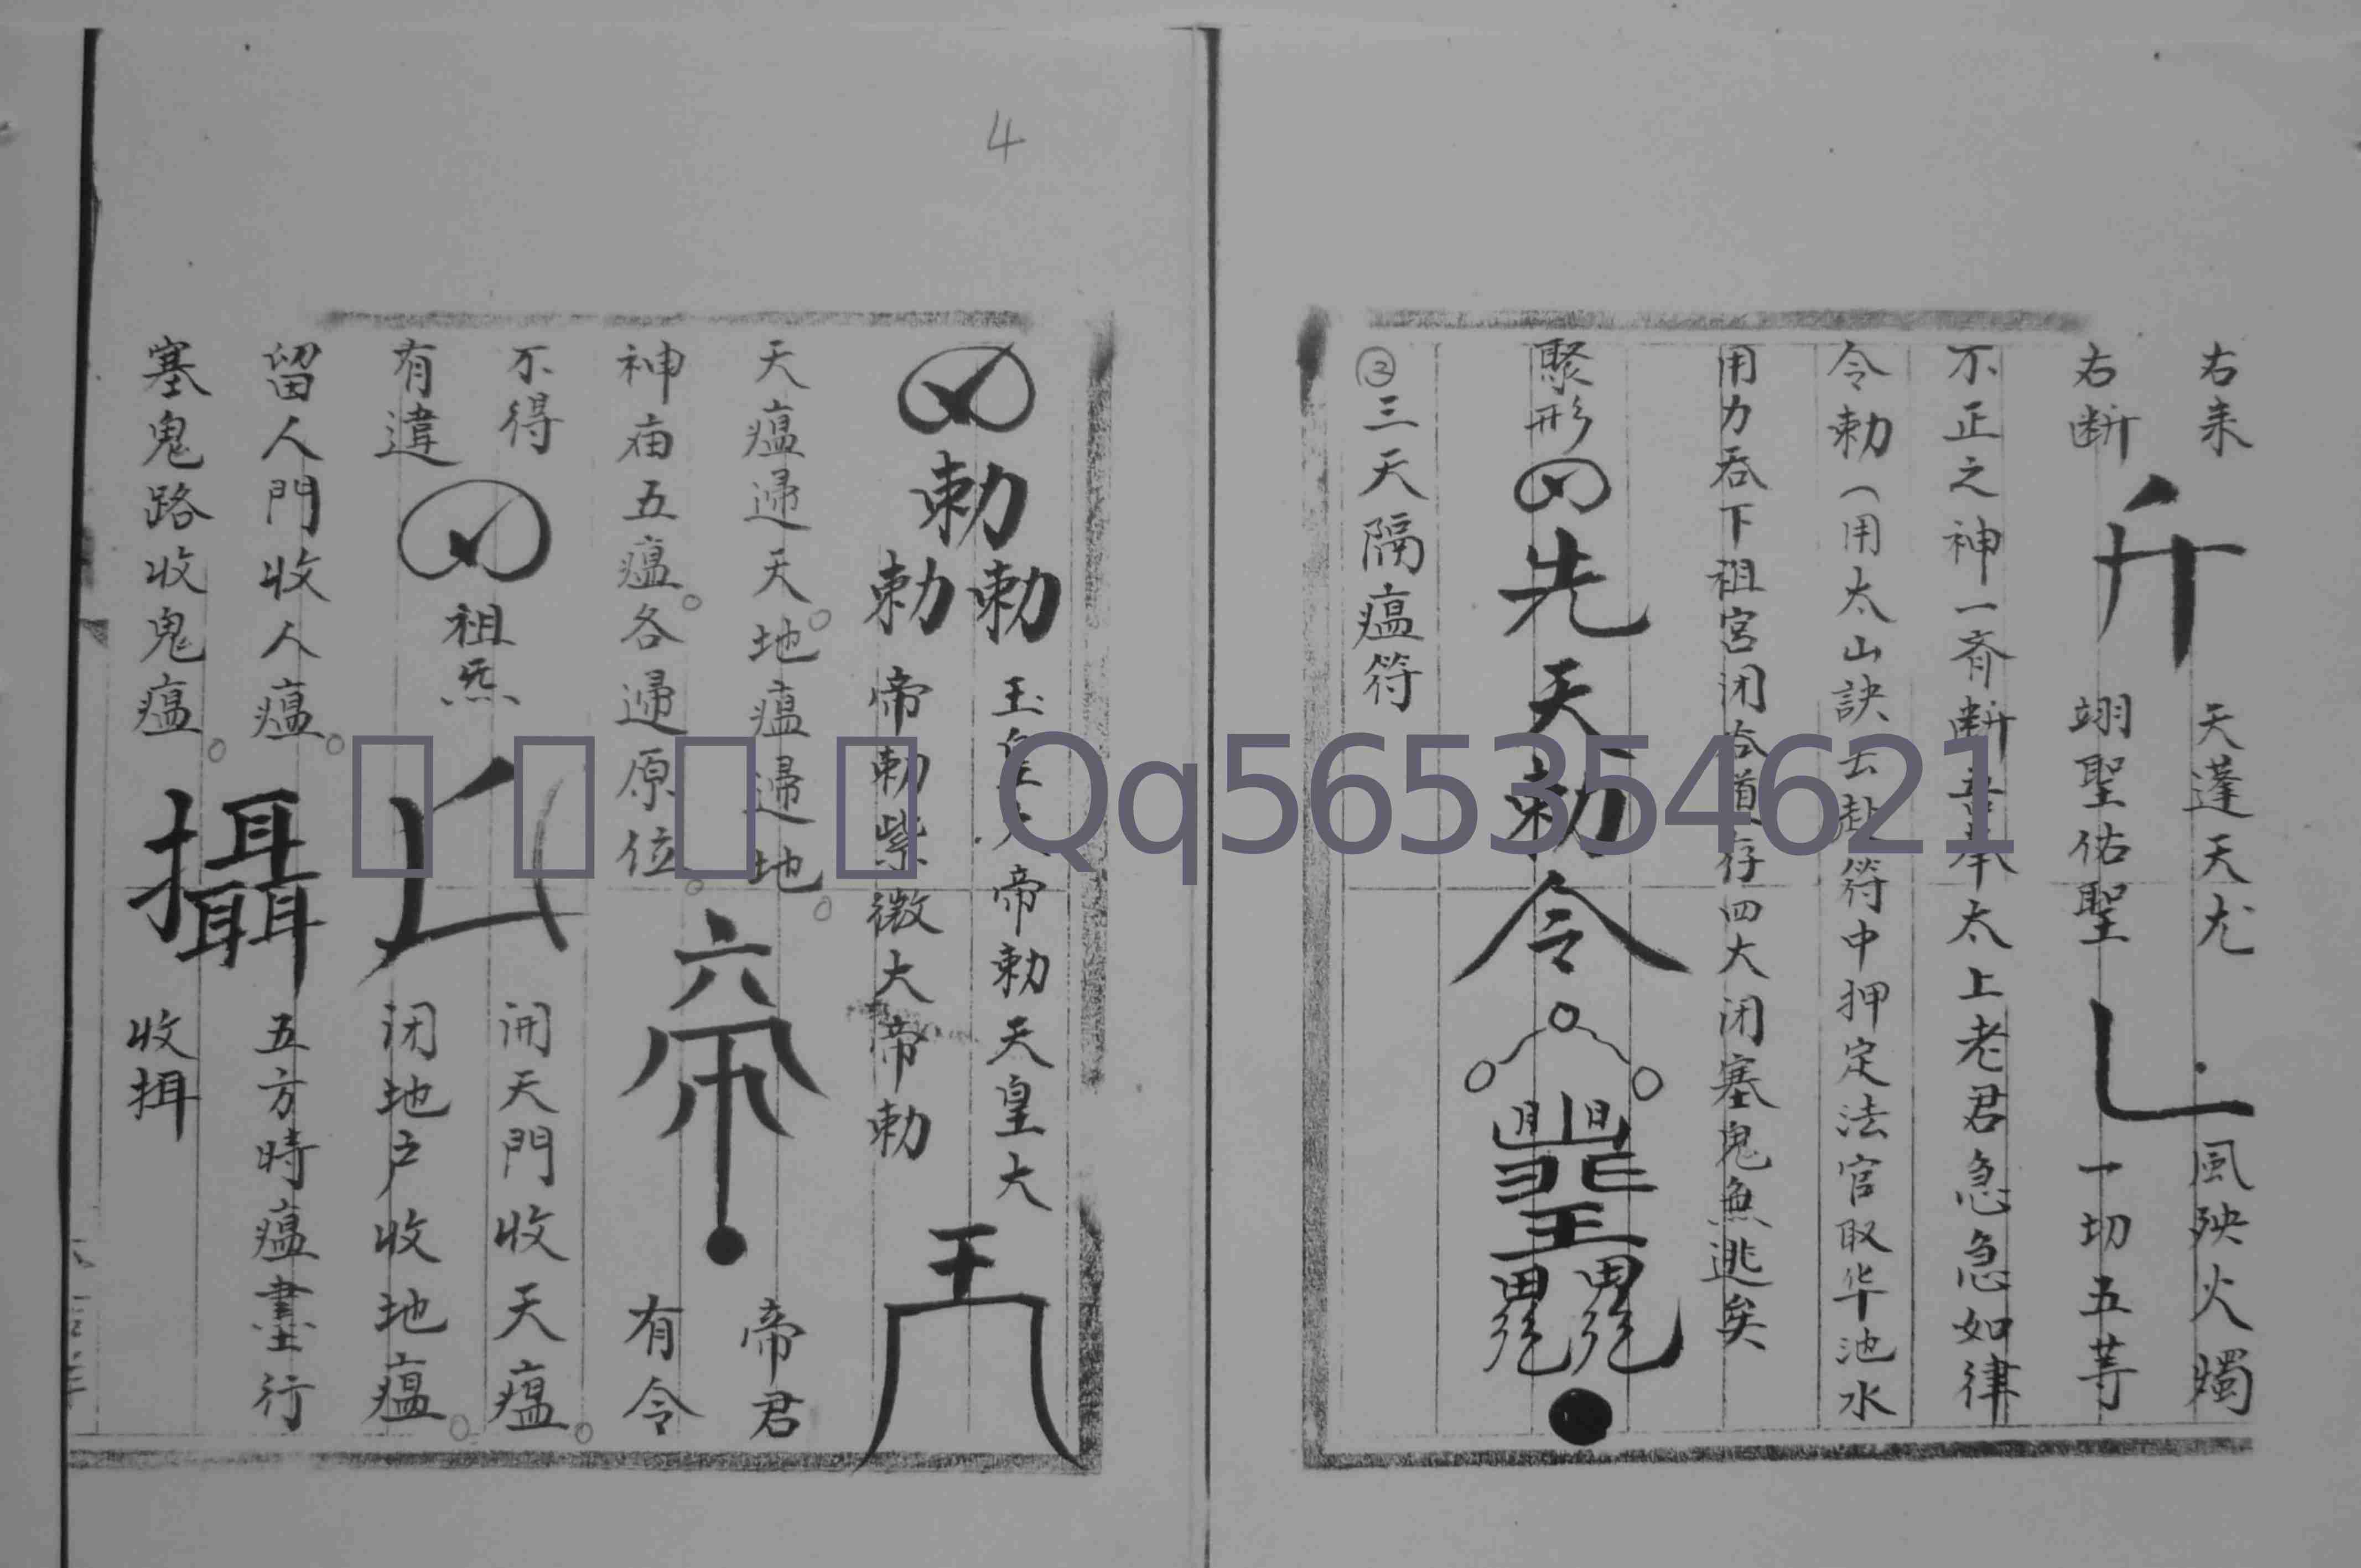 右来
天蓬天尤
風殃火燭
右断
翊聖佑聖
一切五等
不正之神一斉断吾奉太上老君急急如律
令勅（用太山訣去赴符中押定法官取华池水
用力吞下祖宮闭
存四大闭塞鬼無逃矣
聚形
先天勅令
③三天隔瘟符
4
勅
勅勅
玉皇大帝勅天皇大
帝勅紫微大帝勅
天瘟歸天。地瘟歸地。
帝君
神庙五瘟。各歸原位。
有令
六
不得
有違
祖炁
開天門收天瘟。
闭地户收地瘟。
留人門收人瘟。
塞鬼路收鬼瘟。
攝
五方時瘟晝行
收揖
Qq565354621